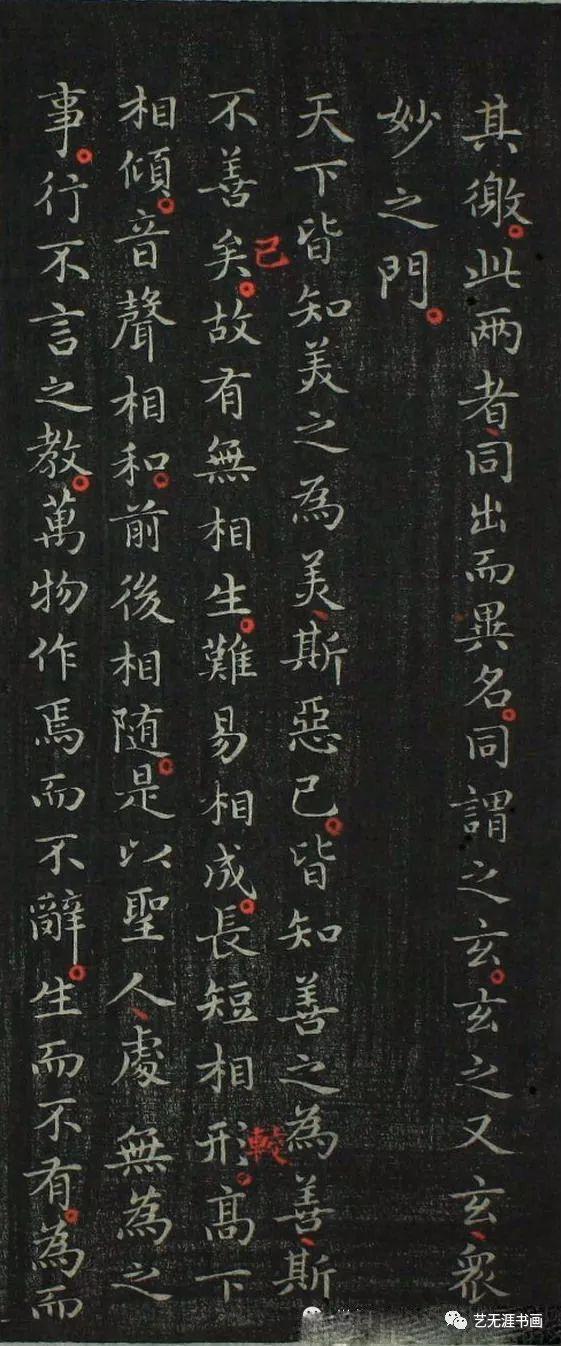 其徼。此兩者、同出而異名。同謂之玄。玄之又玄、眾
妙之門。
天下皆知美之為美、斯惡已。皆知善之為善、斯
已
較
不善矣。故有無相生。難易相成。長短相形。高下
相傾。音聲相和。前後相随。是以聖人、處無為之
事。行不言之教。萬物作焉而不辭。生而不有。為而
艺无涯书画